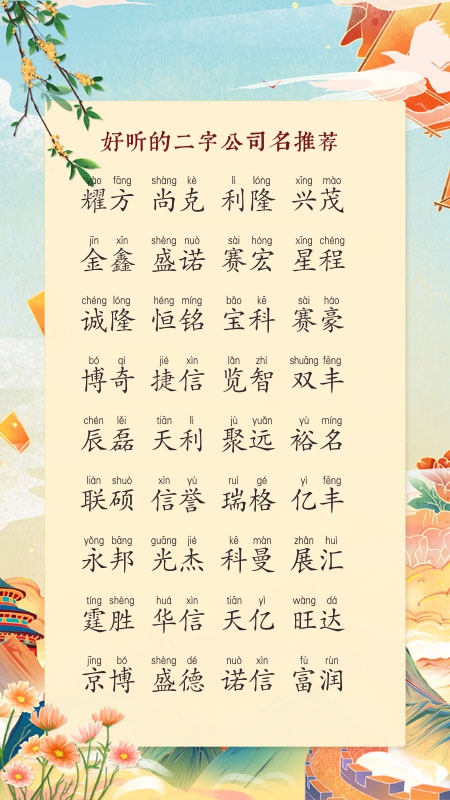 好听的二字公司名推荐
yào fāng shàng kè lì lóng xīng mào
耀方 尚克 利隆 兴茂
jīn xīn shèng nuò sài hóng xīng chéng
金鑫 盛诺 赛宏 星程
chéng lóng héng míng bǎo kē sài háo
诚隆 恒铭 宝科 赛豪
bó qí jié xìn lǎn zhì shuāng fēng
博奇 捷信 览智 双丰
chén lěi tiān lì jù yuǎn yù míng
辰磊 天利 聚远 裕名
lián shuò xìn yù ruì gé yì fēng
联硕 信誉 瑞格 亿丰
yǒng bāng guāng jié kē màn zhǎn huì
永邦 光杰 科曼 展汇
tíng shèng huá xìn tiān yì wàng dá
霆胜 华信 天亿 旺达
jīng bó shèng dé nuò xìn fù rùn
京博 盛德 诺信 富润